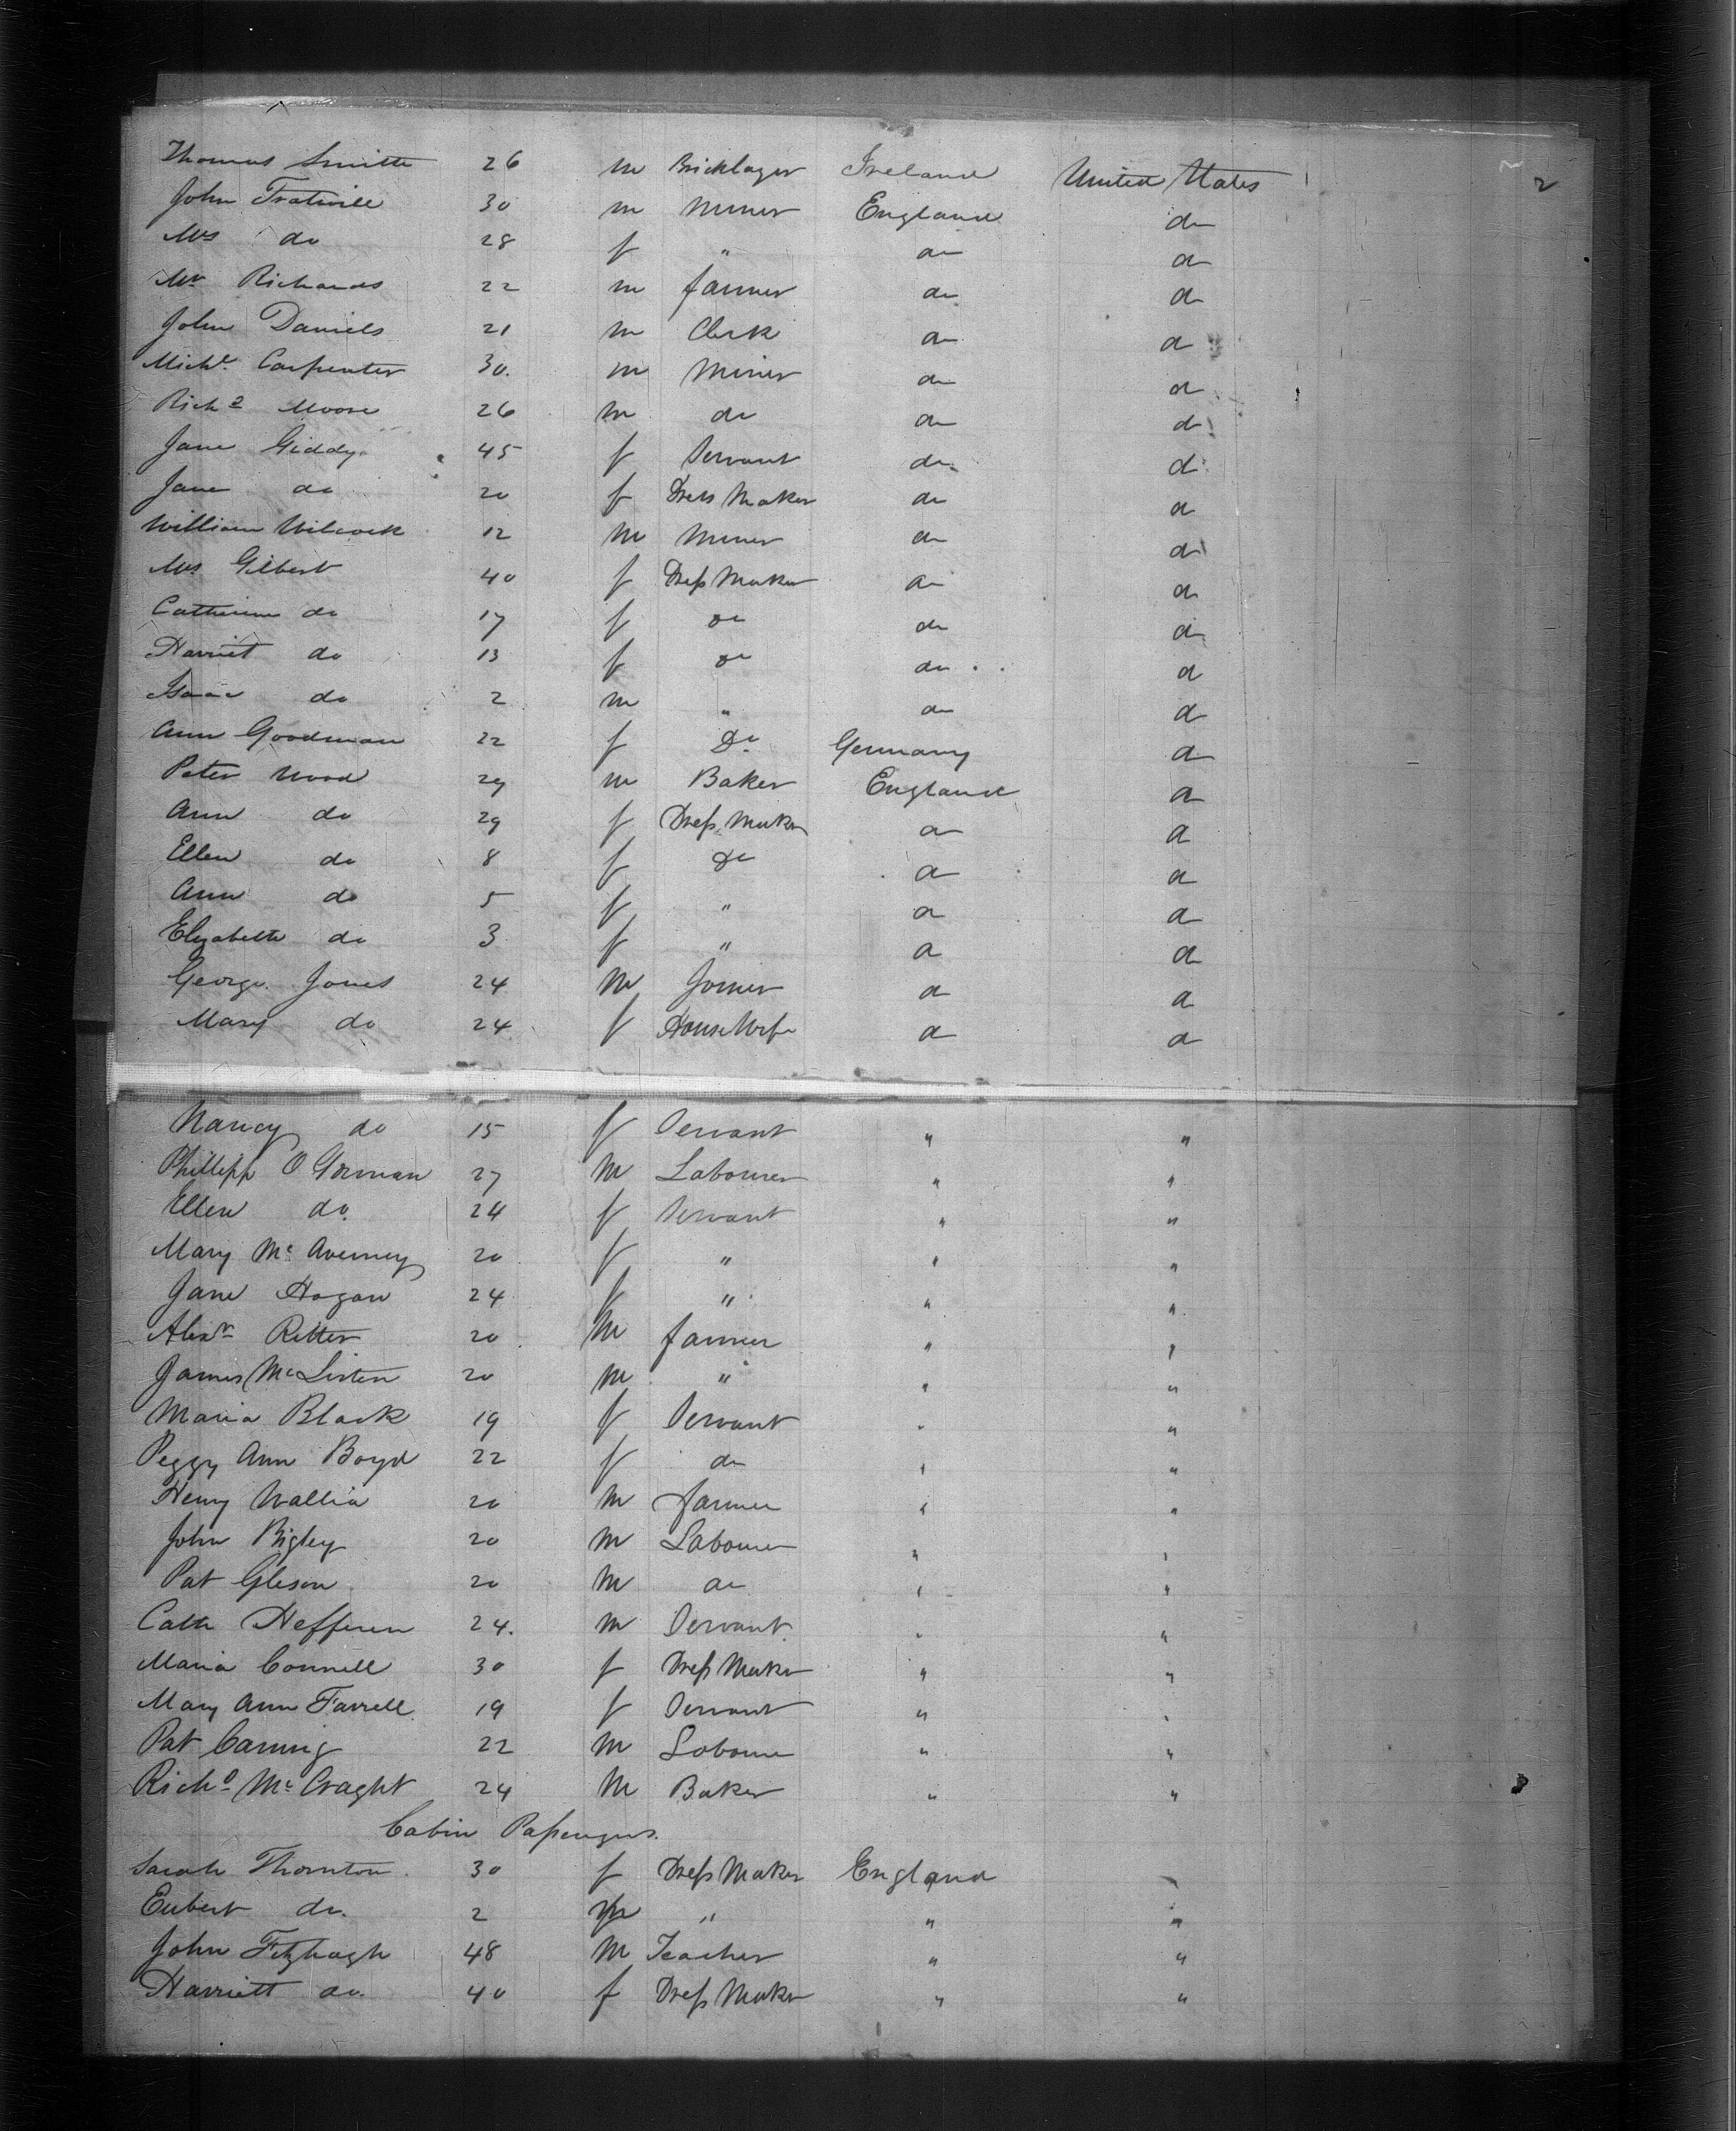 2
Thomas Smith 26 m Bricklayer Ireland United States
John Tratwill 30 m Miner England do
Mrs do 28 f " do do
Mr Richards 22 m farmer do do
John Daniels 21 m Clerk do do
Michl. Carpenter 30. m Miner do do
Richd Moore 26 m do do do
Jane Giddy 45 f Servant do do
Jane do 20 f Dress Maker do do
William Wilcock 12 m Miner do do
Mrs Gilbert 40 f Dress Maker do do
Catherine do 17 f do do do
Harriet do 13 f do do do
Isaac do 2 m " do do
Ann Goodman 22 f Do Germany do
Peter Wood 29 m Baker England do
Ann do 29 f Dress Maker do do
Ellen do 8 f Do do do
Ann do 5 f " do do
Elizabeth do 3 f " do do
George Jones 24 m Joiner do do
Mary do 24 f House Wife do do
Nancy do 15 f Servant " "
Phillipp O Gorman 27 m Labourer " "
Ellen do. 24 f Servant " "
Mary Mc Averney 20 f " " "
Jane Hogan 24 f " " "
Alexr Ritter 20 m farmer " "
James Mc Listen 20 m " " "
Maria Black 19 f Servant " "
Peggy Ann Boyd 22 f do " "
Henry Wallia 20 m farmer " "
John Bigley 20 m Labourer " "
Pat Gleson 20 m do " "
Cath Hefferen 24. m Servant " "
Maria Connell 30 f Dress Maker " "
Mary Ann Farrell 19 f Servant " "
Pat Caning 22 m Labourer " "
Richd Mc Craght 24 m Baker " "
Cabin Passengers.
Sarah Thornton 30 f Dress Maker England "
Eubert do. 2 m " " "
John Fitzhugh 48 m Teacher " "
Harriett do. 40 f Dress Maker " "